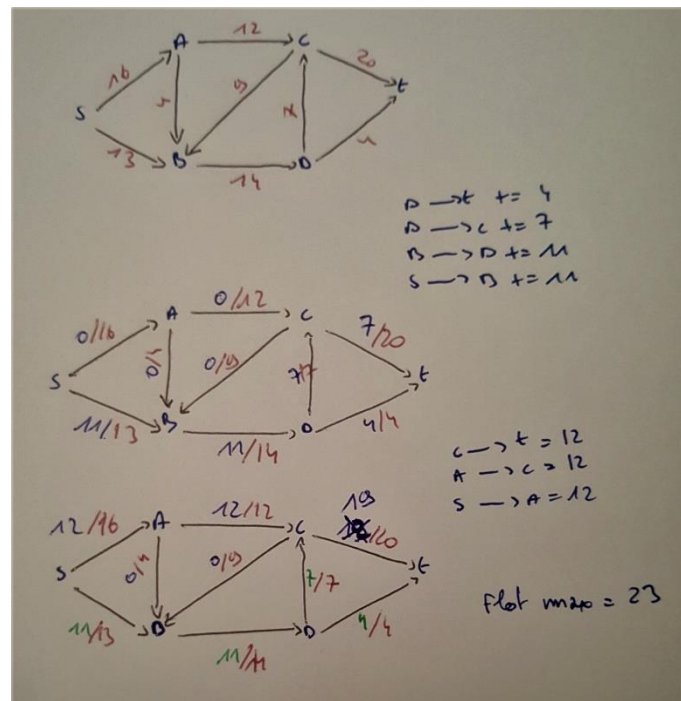 A 12 C
16 20
S 4 9 7 t
13 B 14 D 4
D → t += 4
D → C += 7
B → D += 11
S → B += 11
A 0/12 C
0/16 7/20
S 0/4 0/9 7/7 t
11/13 B 11/14 D 4/4
C → t = 12
A → C = 12
S → A = 12
12/16 A 12/12 C 19/20
S 0/4 0/9 7/7 t
11/13 B 11/14 D 4/4
Flot max = 23